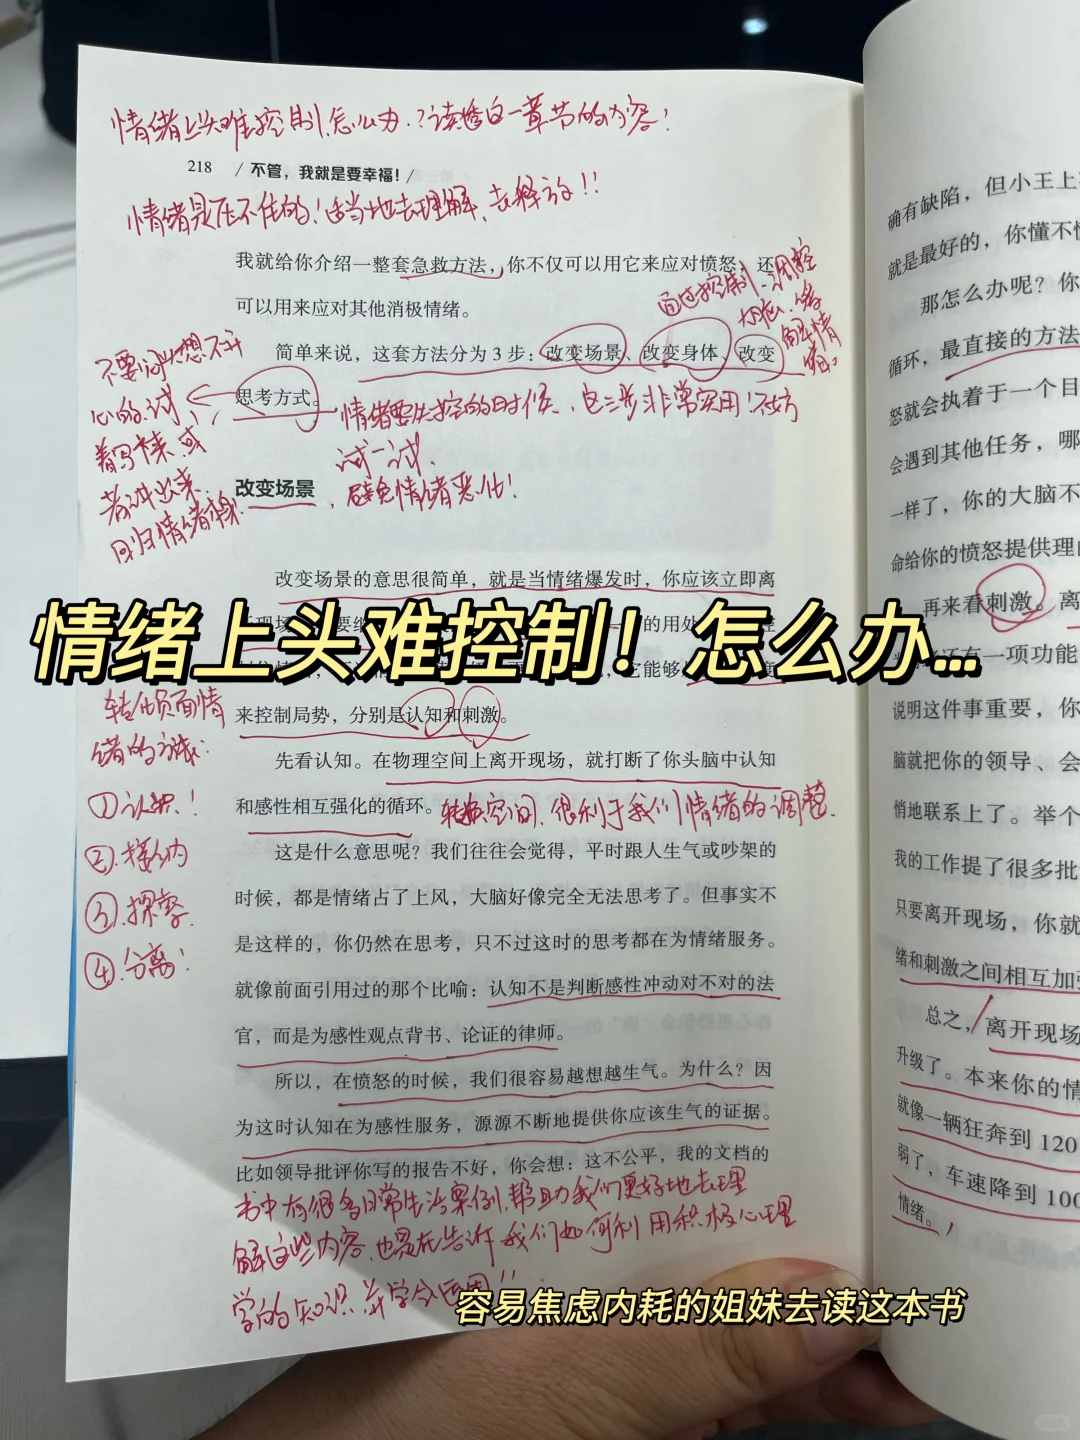 情绪上头难控制怎么办.?读透这一章节的内容!
218 / 不管，我就是要幸福! /
情绪是压不住的!适当地去理解、去释放!!
我就给你介绍一整套急救方法，你不仅可以用它来应对愤怒，还
可以用来应对其他消极情绪。
通过控制、调控
缓
解情
绪。
简单来说，这套方法分为 3 步：改变场景、改变身体、改变
思考方式。
不要闷头想不开
心的试
着写下来、或
者讲出来
回归情绪
情绪要失控的时候、这三步非常实用!不妨
试一试、
避免情绪恶化!
改变场景
改变场景的意思很简单，就是当情绪爆发时，你应该立即离
情绪上头难控制！怎么办...
的用处
它能够
来控制局势，分别是认知和刺激。
转化负面情
绪的方法:
①认识!
②接纳
③.探索.
④.分离!
先看认知。在物理空间上离开现场，就打断了你头脑中认知
和感性相互强化的循环。
转换空间、很利于我们情绪的调整、
这是什么意思呢？我们往往会觉得，平时跟人生气或吵架的
时候，都是情绪占了上风，大脑好像完全无法思考了。但事实不
是这样的，你仍然在思考，只不过这时的思考都在为情绪服务。
就像前面引用过的那个比喻：认知不是判断感性冲动对不对的法
官，而是为感性观点背书、论证的律师。
所以，在愤怒的时候，我们很容易越想越生气。为什么？因
为这时认知在为感性服务，源源不断地提供你应该生气的证据。
比如领导批评你写的报告不好，你会想：这不公平，我的文档的
书中有很多日常生活案例、帮助我们更好地去理
解这些内容、也是在告诉我们如何利用积极心理
学的知识、并学会运用!!
容易焦虑内耗的姐妹去读这本书
确有缺陷，但小王上
就是最好的，你懂不
那怎么办呢？你
循环，最直接的方法
怒就会执着于一个目
会遇到其他任务，哪
一样了，你的大脑不
命给你的愤怒提供理
再来看刺激。离
还有一项功能
说明这件事重要，你
脑就把你的领导、会
悄地联系上了。举个
我的工作提了很多批
只要离开现场，你就
绪和刺激之间相互加
总之，离开现场
升级了。本来你的情
就像一辆狂奔到 120
弱了，车速降到 100
情绪。